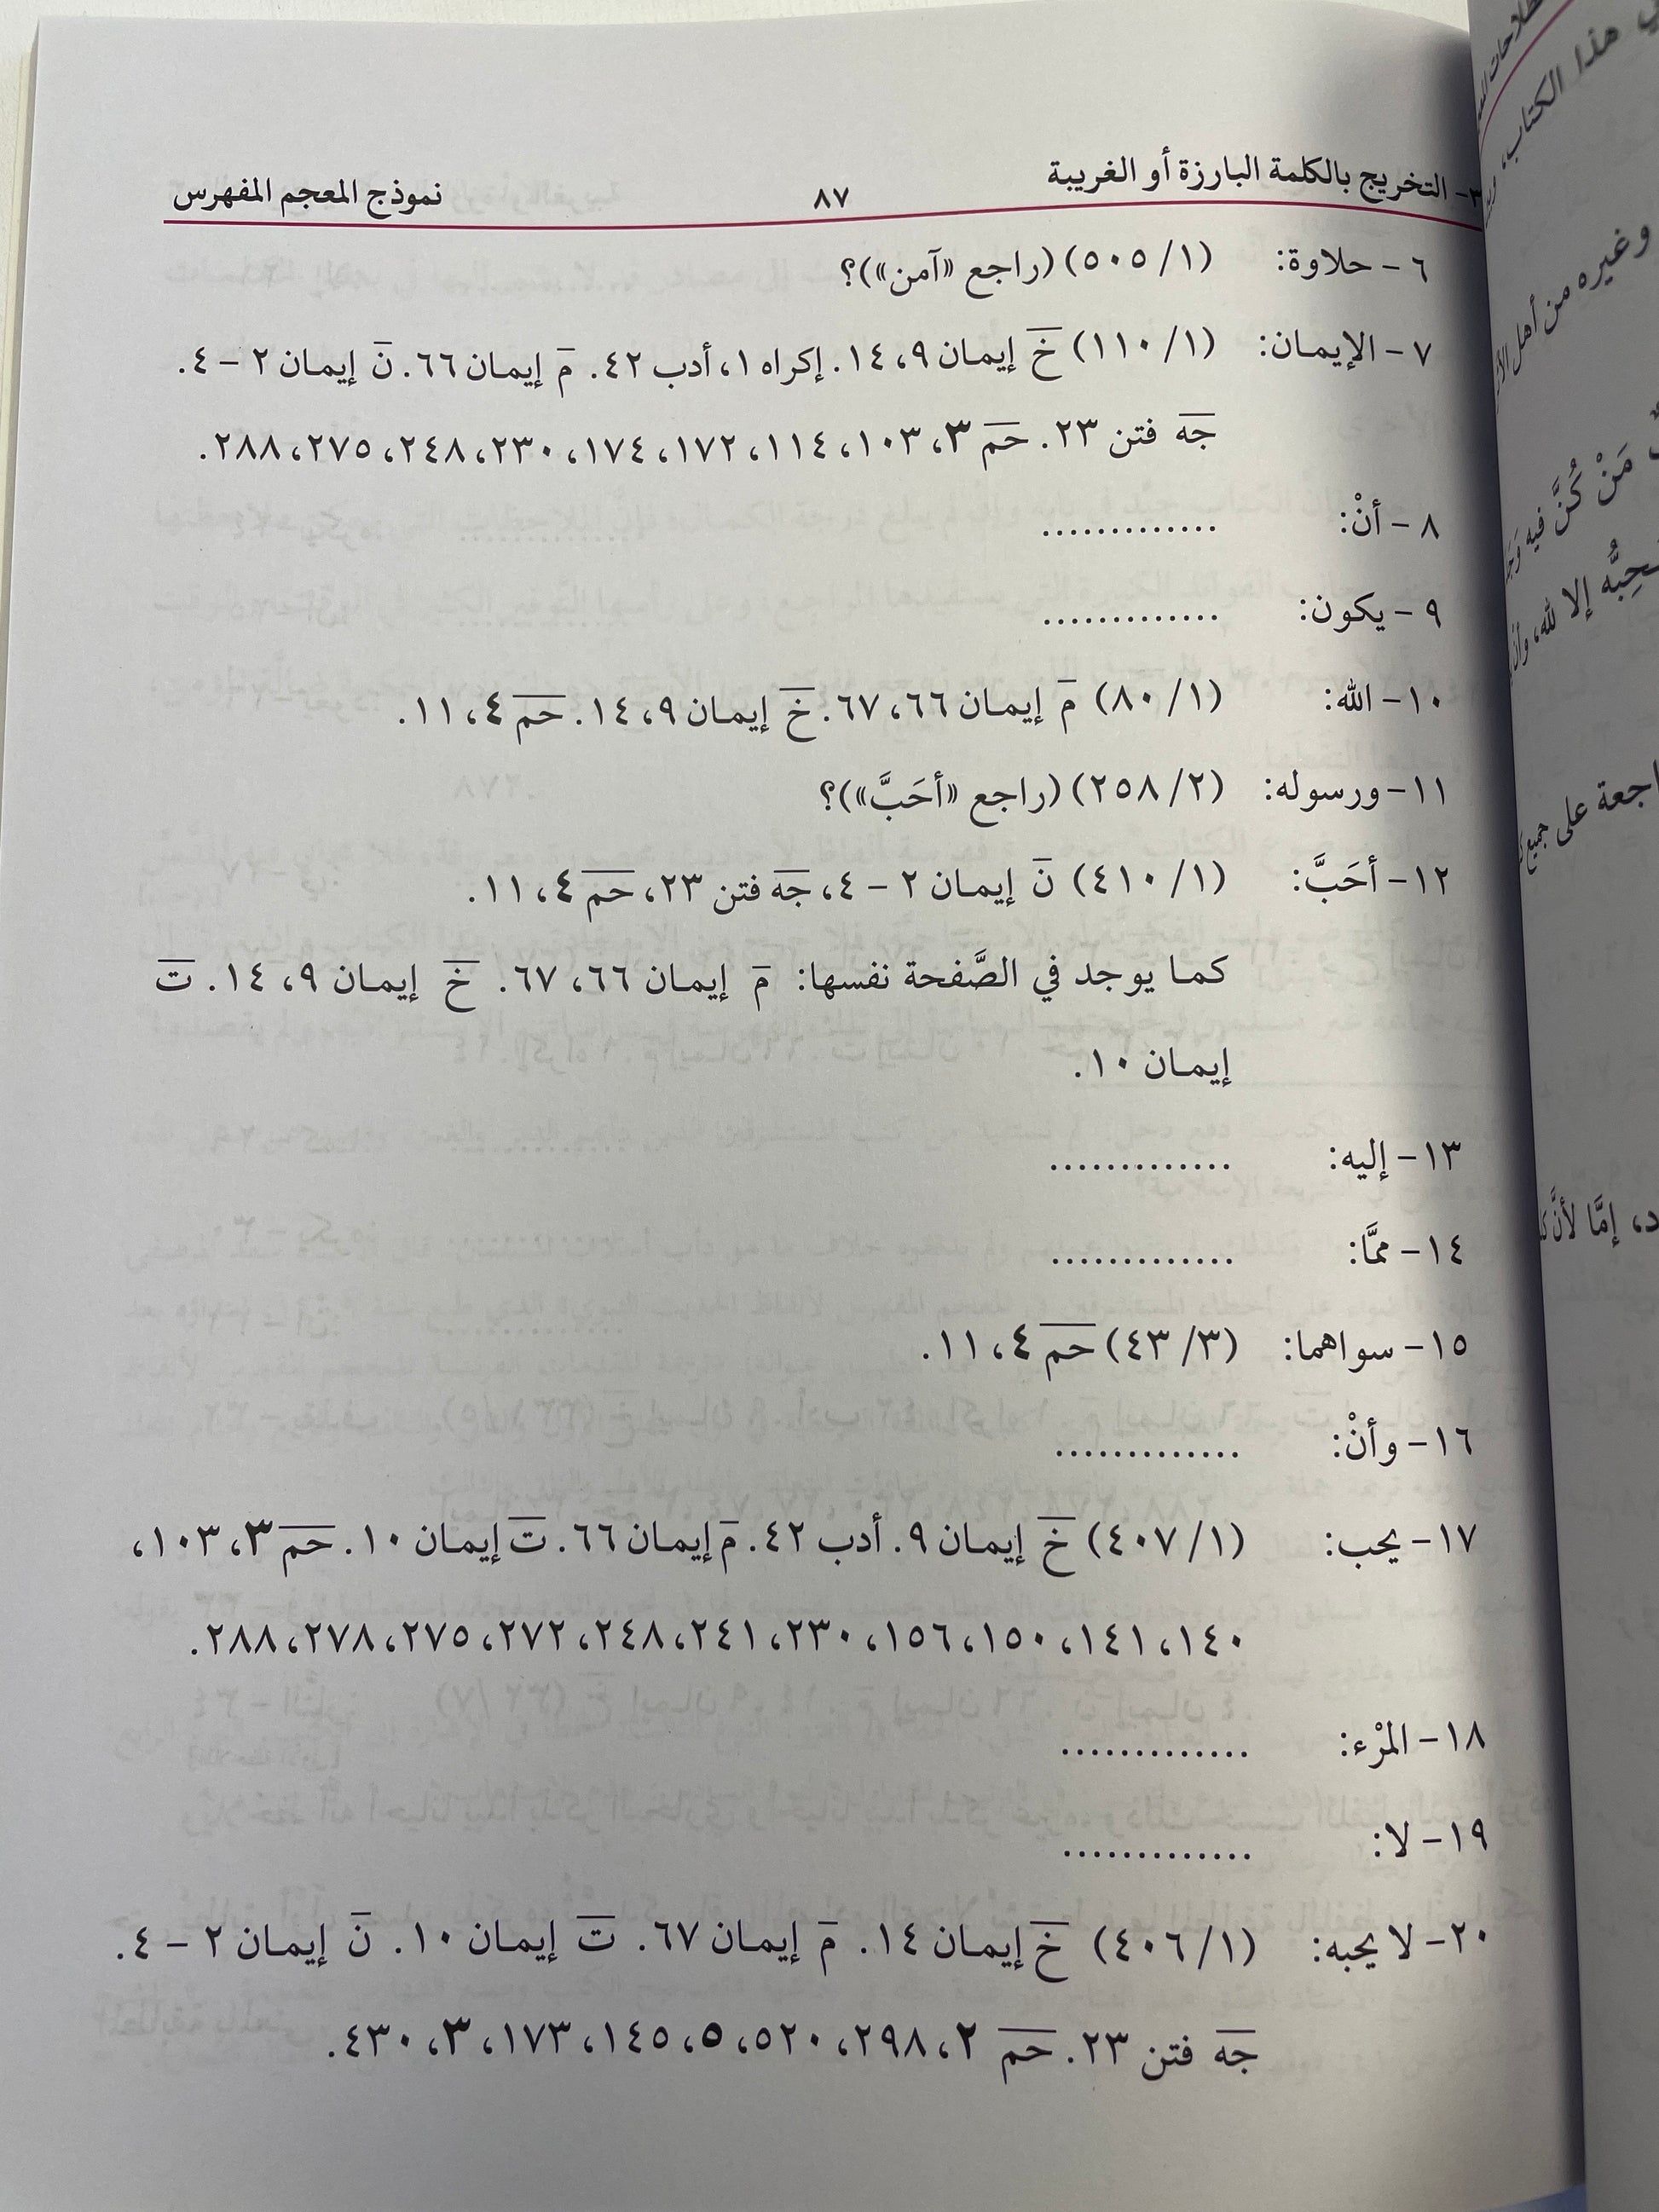 ٣- التخريج بالكلمة البارزة أو الغريبة ٨٧ نموذج المعجم المفهرس
٦ - حلاوة: (١/ ٥٠٥) (راجع «آمن»)؟
٧ - الإيمان: (١/ ١١٠) خَ إيمان ٩، ١٤. إكراه ١، أدب ٤٢. مَ إيمان ٦٦. نَ إيمان ٢ - ٤.
جَه فتن ٢٣. حَم ٣، ١٠٣، ١١٤، ١٧٢، ١٧٤، ٢٣٠، ٢٤٨، ٢٧٥، ٢٨٨.
٨ - أنْ: .............
٩ - يكون: .............
١٠ - الله: (١/ ٨٠) مَ إيمان ٦٦، ٦٧. خَ إيمان ٩، ١٤. حَم ٤، ١١.
١١ - ورسوله: (٢/ ٢٥٨) (راجع «أحَبَّ»)؟
١٢ - أحَبَّ: (١/ ٤١٠) نَ إيمان ٢ - ٤، جَه فتن ٢٣، حَم ٤، ١١.
كما يوجد في الصَّفحة نفسها: مَ إيمان ٦٦، ٦٧. خَ إيمان ٩، ١٤. تَ
إيمان ١٠.
١٣ - إليه: .............
١٤ - ممَّا: .............
١٥ - سواهما: (٣/ ٤٣) حَم ٤، ١١.
١٦ - وأنْ: .............
١٧ - يحب: (١/ ٤٠٧) خَ إيمان ٩. أدب ٤٢. مَ إيمان ٦٦. تَ إيمان ١٠. حَم ٣، ١٠٣،
١٤٠، ١٤١، ١٥٠، ١٥٦، ٢٣٠، ٢٤١، ٢٤٨، ٢٧٢، ٢٧٥، ٢٧٨، ٢٨٨.
١٨ - المرْء: .............
١٩ - لا: .............
٢٠ - لا يحبه: (١/ ٤٠٦) خَ إيمان ١٤. مَ إيمان ٦٧. تَ إيمان ١٠. نَ إيمان ٢ - ٤.
جَه فتن ٢٣. حَم ٢، ٢٩٨، ٥٢٠، ٥، ١٤٥، ١٧٣، ٣، ٤٣٠.
هذا الكتاب،
وغيره من أهل
مَنْ كُنَّ فيه
إلا لله، وأن
على جميع
إمَّا لأنَّ